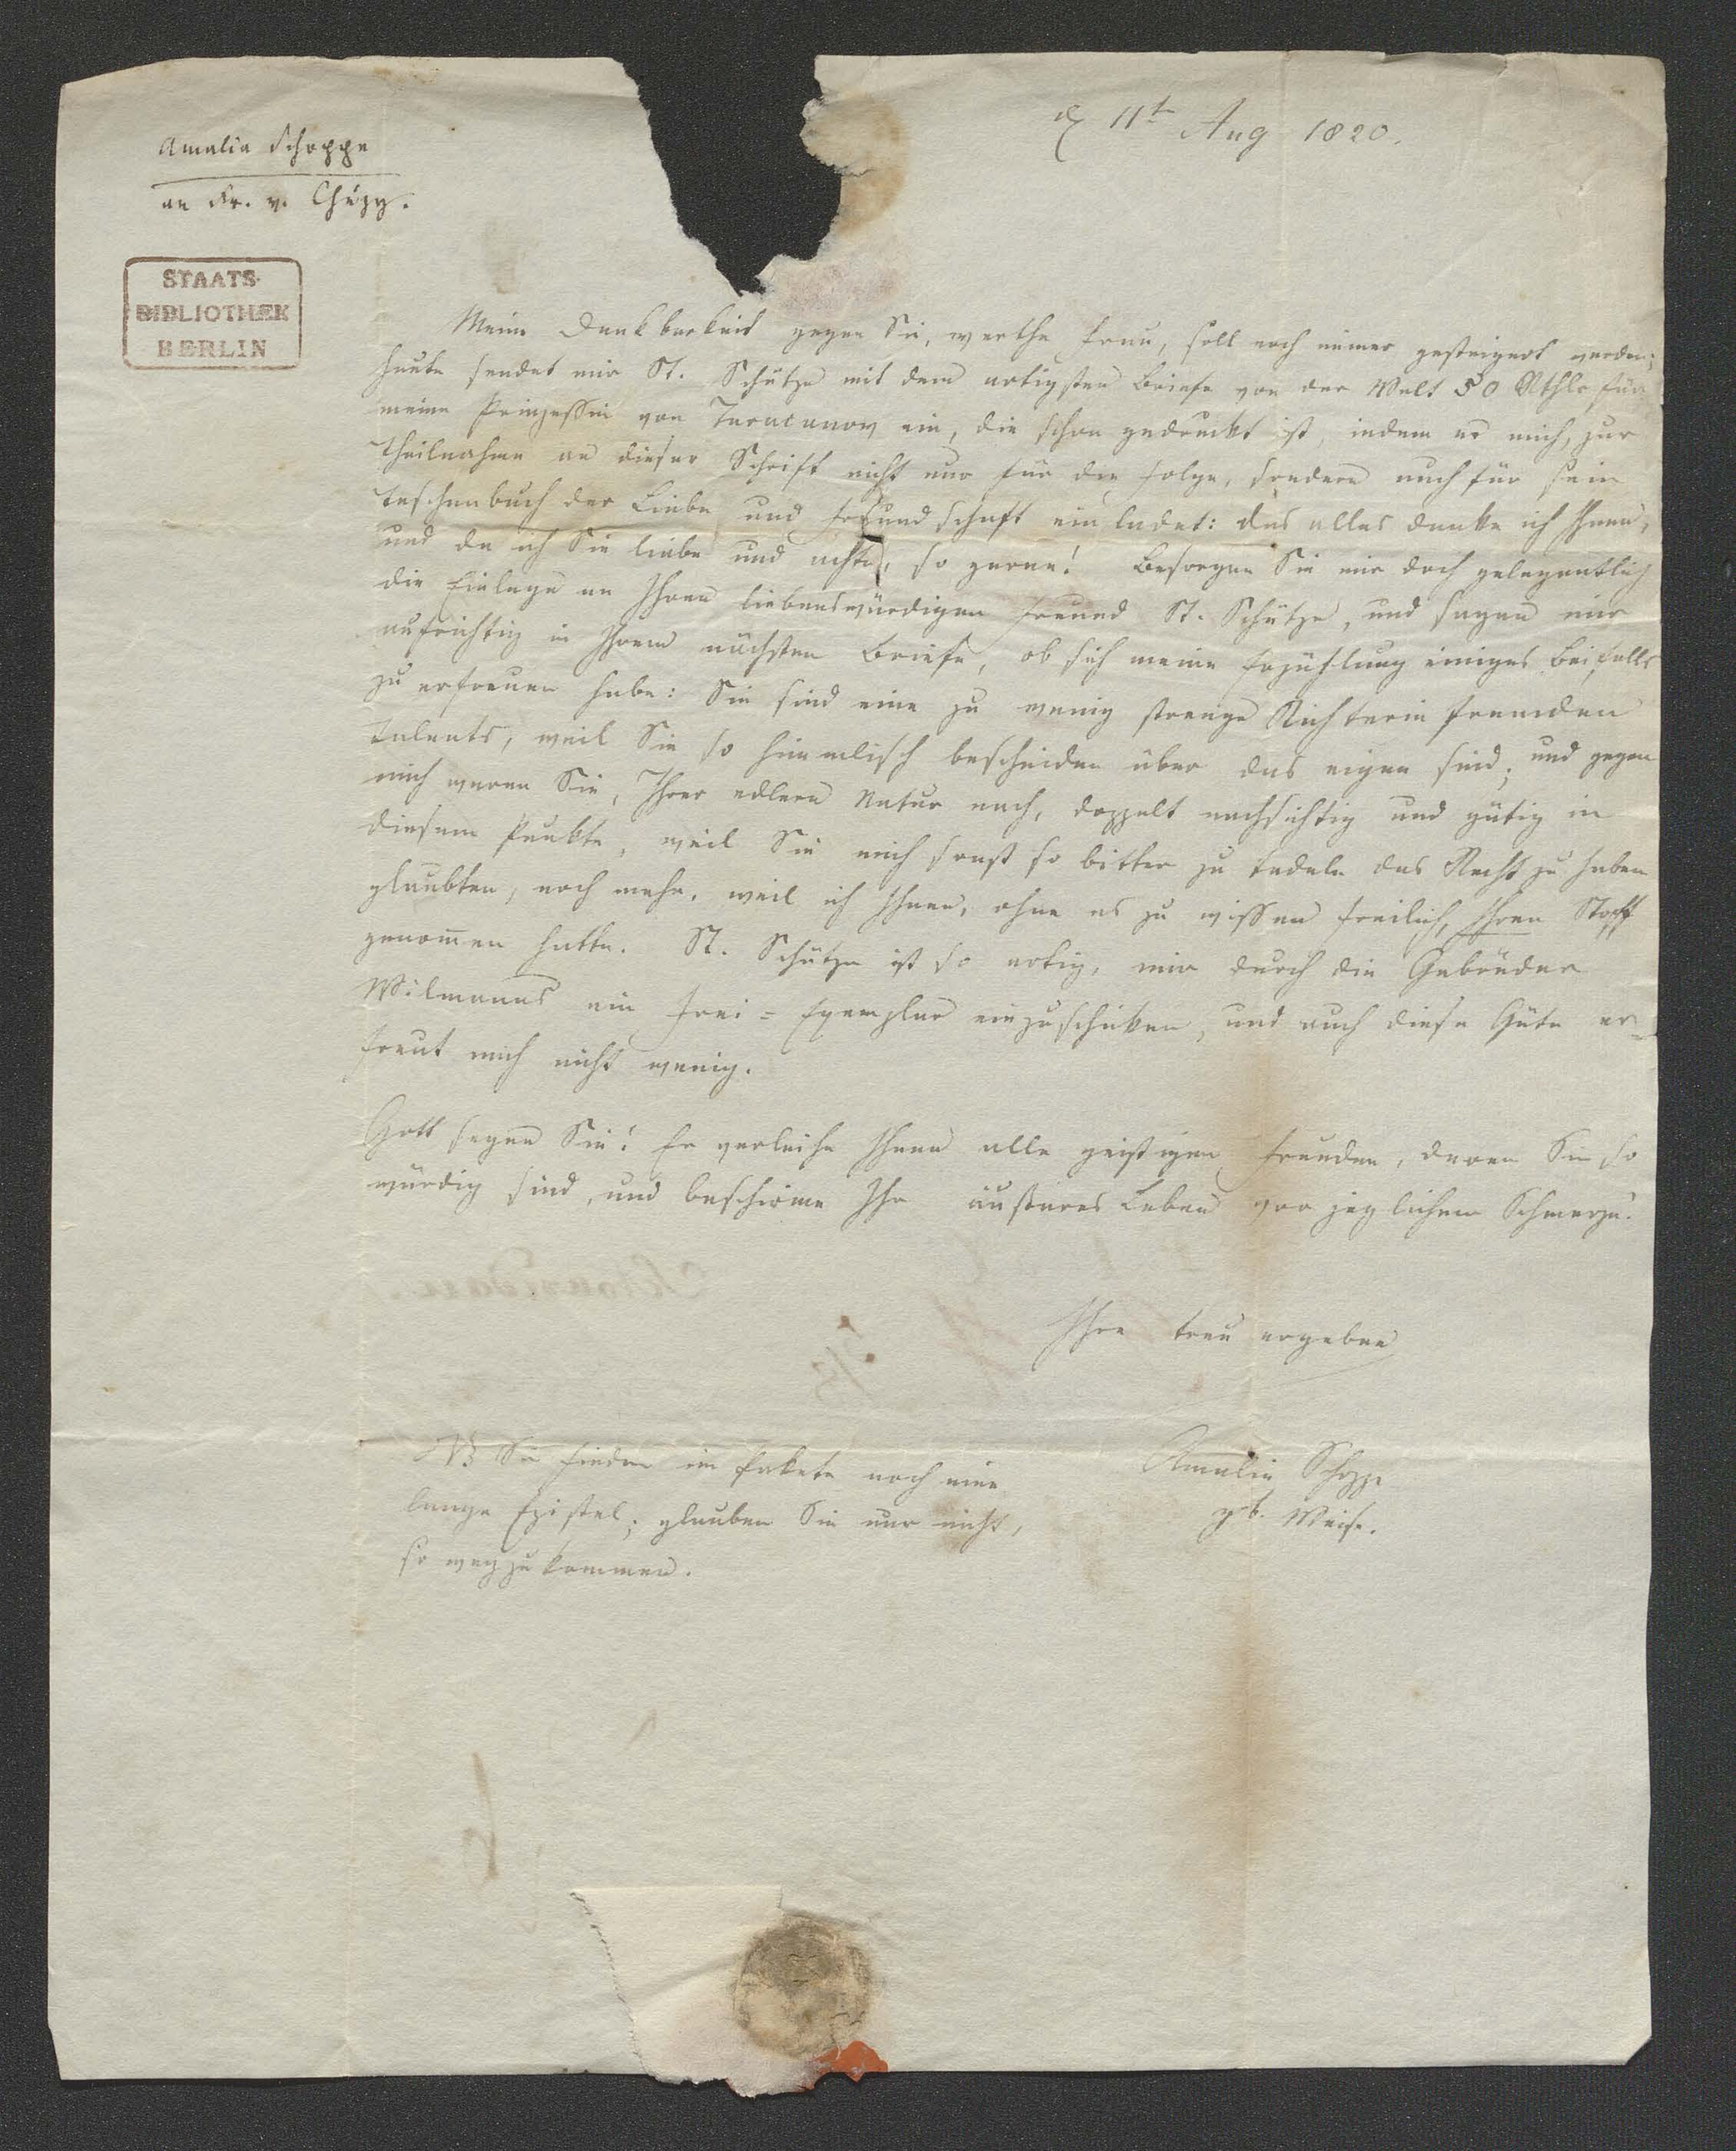 Amalia Schoppe
an Fr. v. Chézy.
STAATS-
BIBLIOTHEK
BERLIN
d 11t Aug 1820.
Meine Dankbarkeit gegen Sie, werthe Frau, soll noch immer gesteigert werden;
heute sendet mir St. Schütze mit dem artigsten Briefe von der Welt 50 Rthlr für
meine Prinzessin von Taracanov ein, die schon gedruckt ist, indem er mich, zur
Theilnahme an dieser Schrift nicht nur für die Folge, sondern auch für sein
Taschenbuch der Liebe und Freundschaft einladet: das alles danke ich Ihnen,
und da ich Sie liebe und achte, so gerne! Besorgen Sie mir doch gelegentlich
die Einlage an Ihren liebenswürdigen Freund St. Schütze, und sagen mir
aufrichtig in Ihrem nächsten Briefe, ob sich meine Erzählung einiges Beifalls
zu erfreuen habe: Sie sind eine zu wenig strenge Richterin fremden
Talents, weil Sie so himmlisch bescheiden über das eigen sind; und gegen
mich waren Sie, Ihrer edlern Natur nach, doppelt nachsichtig und gütig in
diesem Punkte, weil Sie mich sonst so bitter zu tadeln das Recht zu haben
glaubten, noch mehr, weil ich Ihnen, ohne es zu wissen freilich, Ihren Stoff
genommen hatte. St. Schütze ist so artig, mir durch die Gebrüder
Wilmanns ein Frei-Exemplar einzuschicken, und auch diese Güte er-
freut mich nicht wenig.
Gott segne Sie! Er verleihe Ihnen alle geistigen Freuden, deren Sie so
würdig sind, und beschirme Ihr äußeres Leben vor jeglichem Schmerze.
Ihre treu ergebne
Amalia Schoppe
gb. Weise.
NB Sie finden im Pakete noch eine
lange Epistel; glauben Sie nur nicht,
so wegzukommen.